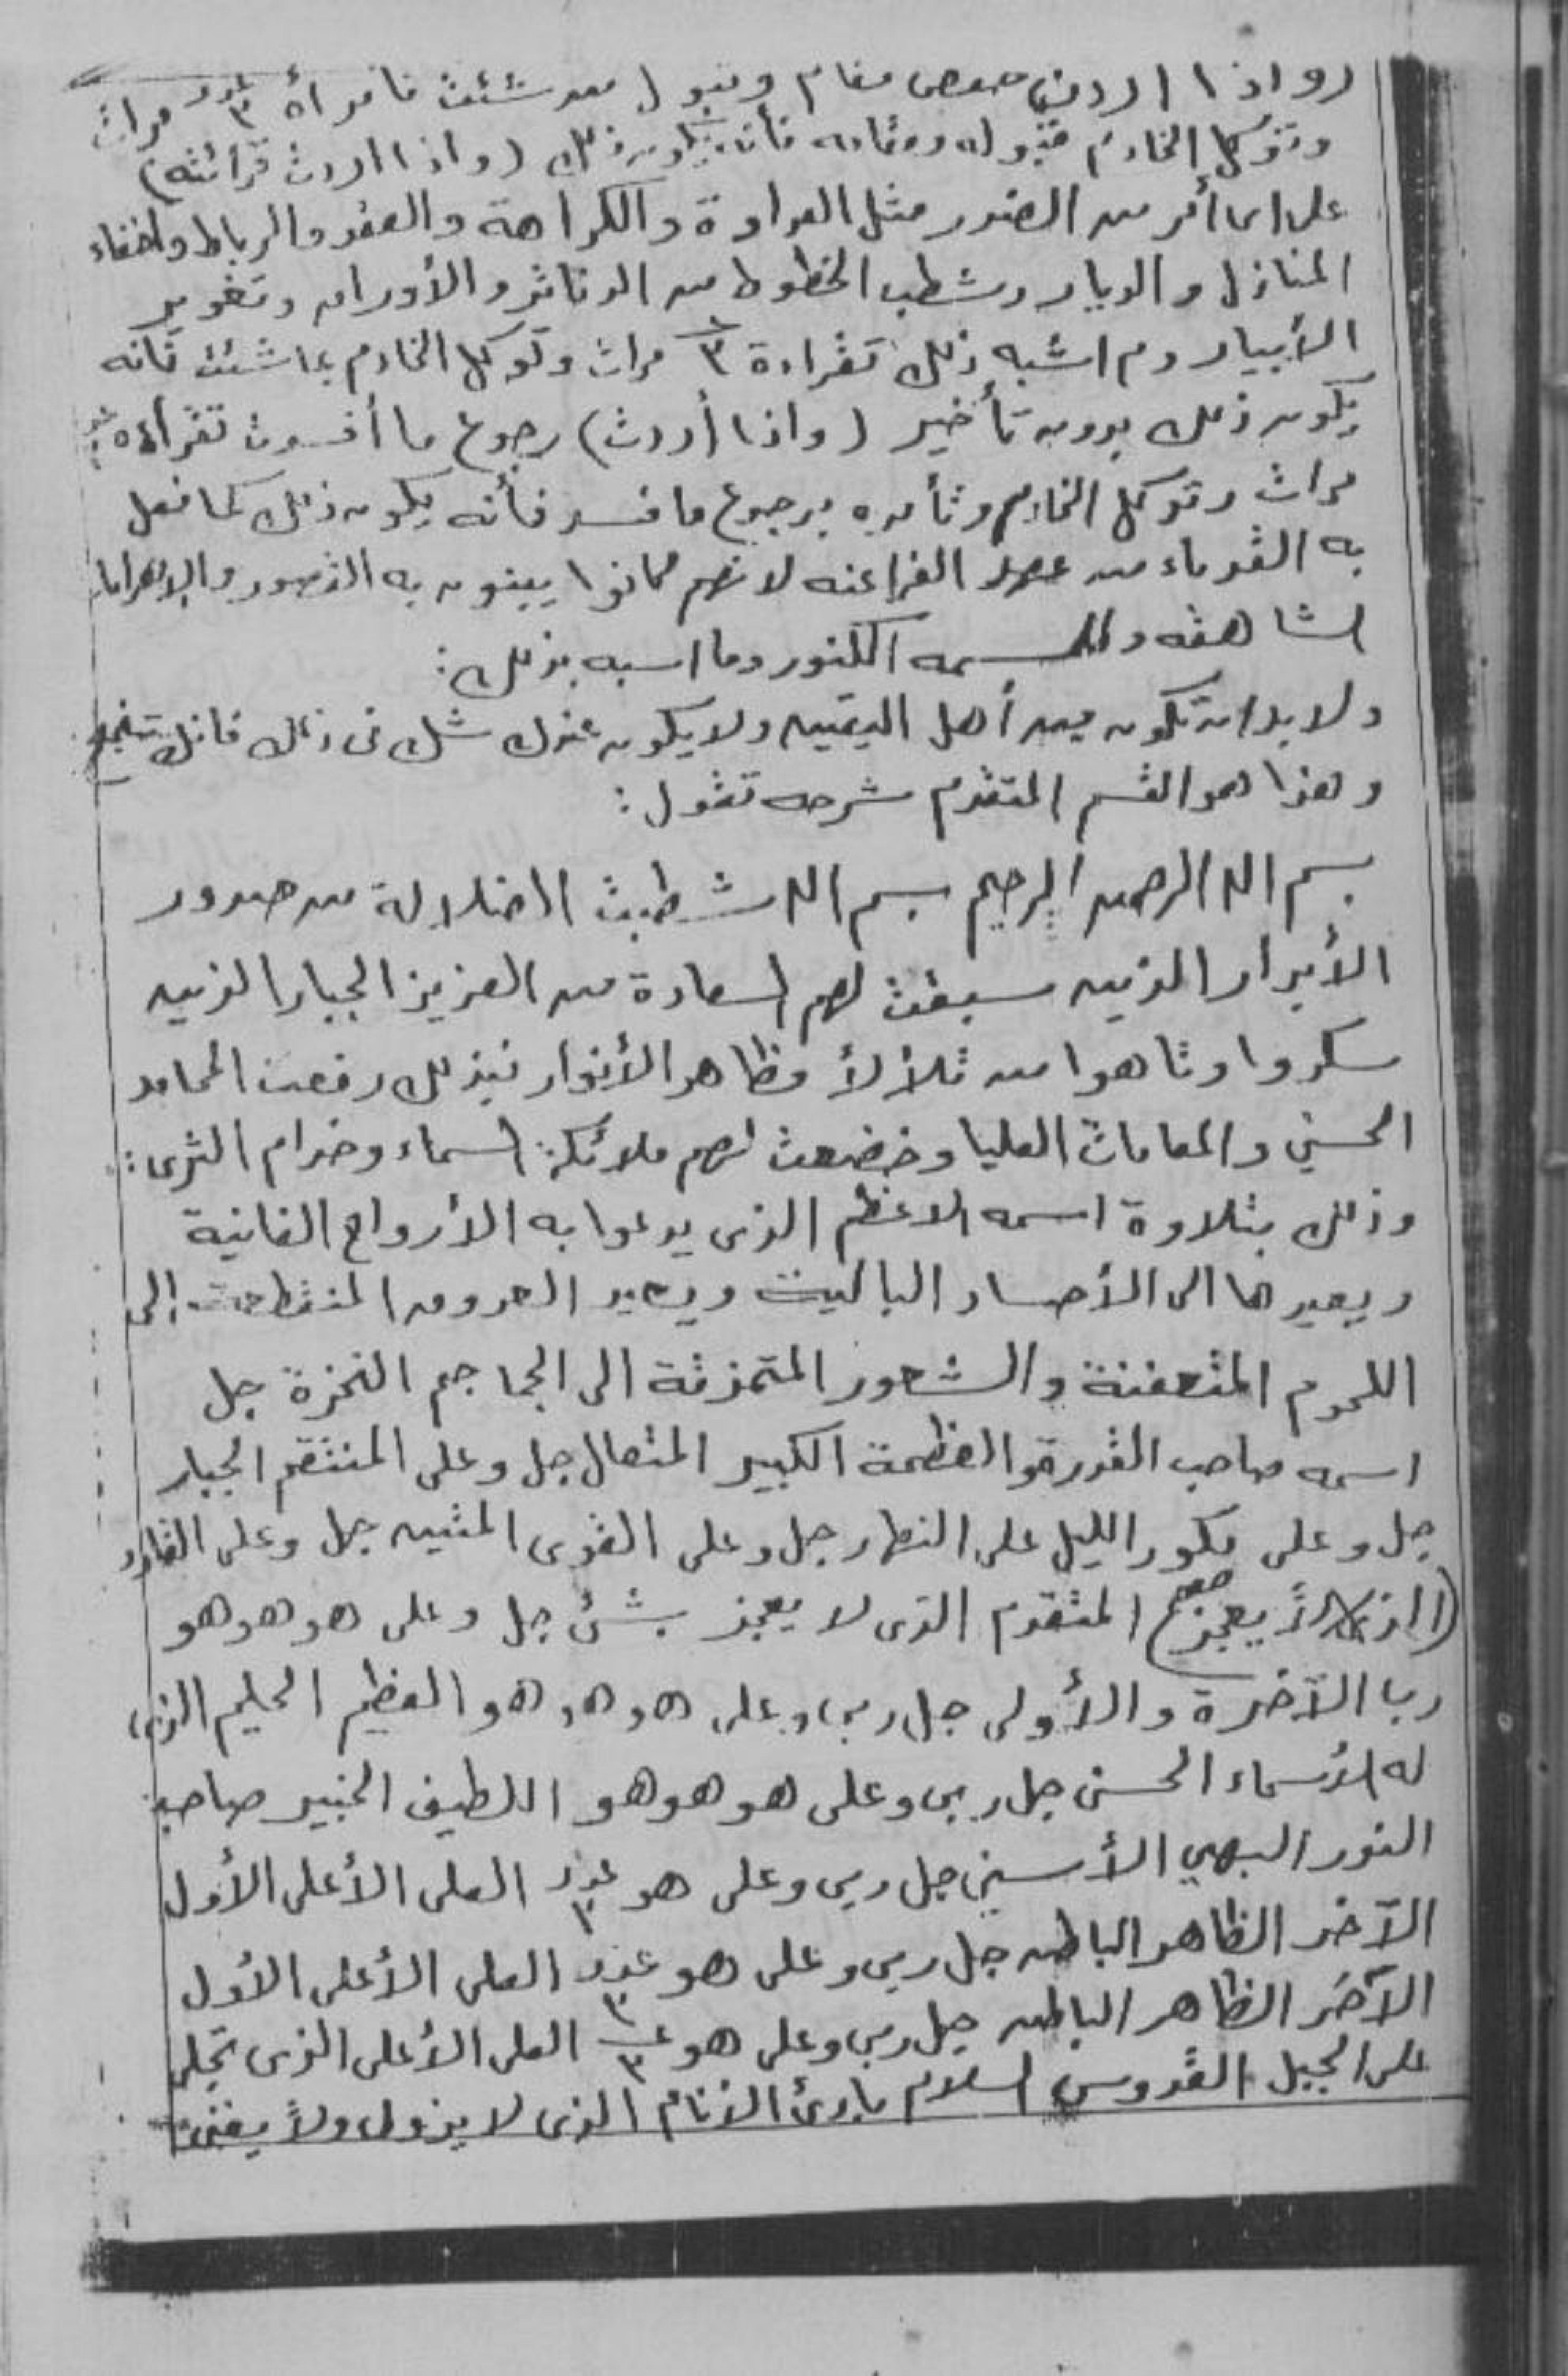 (واذا اردت مقام وقبول معه شئت فاقرأه عدد ٣ مرات
وتوكل الخادم بقبوله ومقامه فأنه يكون ذلك (واذا اردت قرائته)
على اى أمر من الضرر مثل العداوة والكراهة والعقد والرباط واخفاء
المنازل والديار وشطب الخطوط من الدفاتر والأوراق وتغوير
الأبيار وم اشبه ذلك تقراءة ٣ مرات وتوكل الخادم بما شئت فانه
يكون ذلك بدون تأخير (واذا أردت) رجوع ما أفسدت تقرأه
مرات وتوكل الخادم وتأمره برجوع ما فسد فأنه يكون ذلك كما فعل
به القدماء من عهد الفراعنه لانهم كانوا يبنون به القصور والاهرامات
الشاهقه و الكنوز وما اشبه بذلك :
ولا بد ان تكون من أهل اليقين ولا يكون عندك شك فى ذلك فانك تنجح
وهذا هو القسم المتقدم شرحه تقول :
بسم الله الرحمن الرحيم بسم الله شطبت الضلالة من صدور
الأبرار الذين سبقت لهم السعادة من العزيز الجبار الذين
سكروا وتاهوا من تلألأ مظاهر الأنوار فبذلك رفعت المحامد
الحسنى والمقامات العليا وخضعت لهم ملائكة السماء وخدام الثرى :
وذلك بتلاوة اسمه الاعظم الذى يدعوا به الأرواح الفانية
ويعيدها الى الأجساد الباليت ويعيد العروق المنقطعت الى
اللحوم المتعفنة والشعور المتمزقة الى الجماجم النخرة جل
اسمه صاحب القدرة والعظمة الكبير المتعال جل وعلى المنتقم الجبار
جل وعلى مكور الليل على النهار جل وعلى القوى المتين جل وعلى القادر
(الذى لا يعجز) المتقدم الذى لا يعجز بشئ جل وعلى هو هو هو
رب الآخرة والأولى جل ربى وعلى هو هو هو العظيم الحليم الذى
له الأسماء الحسنى جل ربى وعلى هو هو هو اللطيف الخبير صاحب
النور البهي الأسنى جل ربى وعلى هو عدد ٣ العلى الأعلى الأول
الآخر الظاهر الباطن جل ربى وعلى هو عدد ٣ العلى الأعلى الأول
الآخر الظاهر الباطن جل ربى وعلى هو عـ ٣ العلى الأعلى الذى تجلى
على الجبل القدوس السلام بارئ الأنام الذى لا يزول ولا يفنى